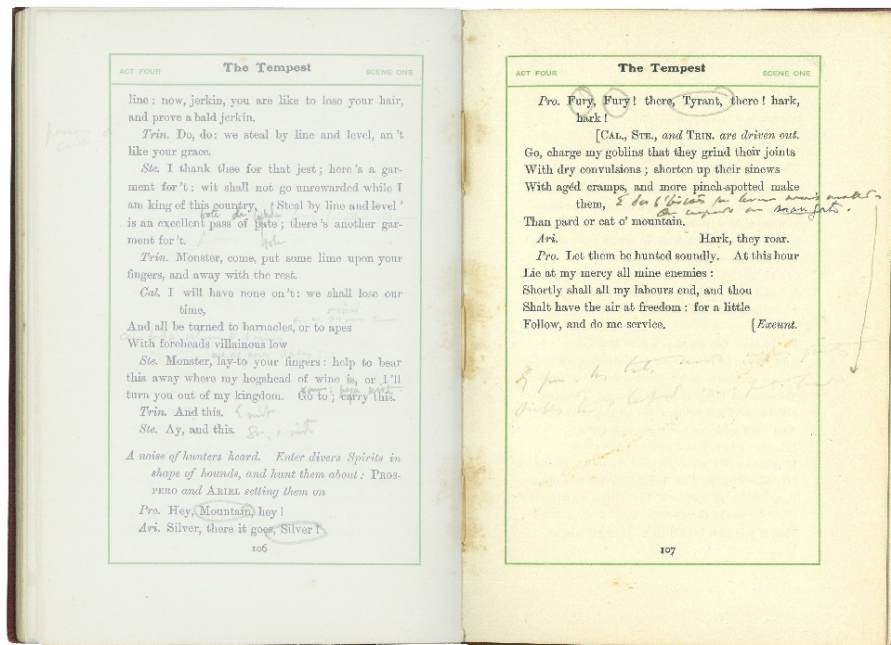 ACT FOUR The Tempest SCENE ONE
line: now, jerkin, you are like to lose your hair,
and prove a bald jerkin.
Trin. Do, do: we steal by line and level, an't
like your grace.
Ste. I thank thee for that jest; here's a gar-
ment for't: wit shall not go unrewarded while I
am king of this country. 'Steal by line and level'
is an excellent pass of pate; there's another gar-
ment for't.
Trin. Monster, come, put some lime upon your
fingers, and away with the rest.
Cal. I will have none on't: we shall lose our
time,
And all be turned to barnacles, or to apes
With foreheads villainous low
Ste. Monster, lay-to your fingers: help to bear
this away where my hogshead of wine is, or I'll
turn you out of my kingdom. Go to; carry this.
Trin. And this.
Ste. Ay, and this.
A noise of hunters heard. Enter divers Spirits in
shape of hounds, and hunt them about: PROS-
PERO and ARIEL setting them on
Pro. Hey, Mountain, hey!
Ari. Silver, there it goes, Silver!
106
ACT FOUR The Tempest SCENE ONE
Pro. Fury, Fury! there, Tyrant, there! hark,
hark!
[CAL., STE., and TRIN. are driven out.
Go, charge my goblins that they grind their joints
With dry convulsions; shorten up their sinews
With agéd cramps, and more pinch-spotted make
them,
Than pard or cat o' mountain.
Ari. Hark, they roar.
Pro. Let them be hunted soundly. At this hour
Lie at my mercy all mine enemies:
Shortly shall all my labours end, and thou
Shalt have the air at freedom: for a little
Follow, and do me service. [Exeunt.
107